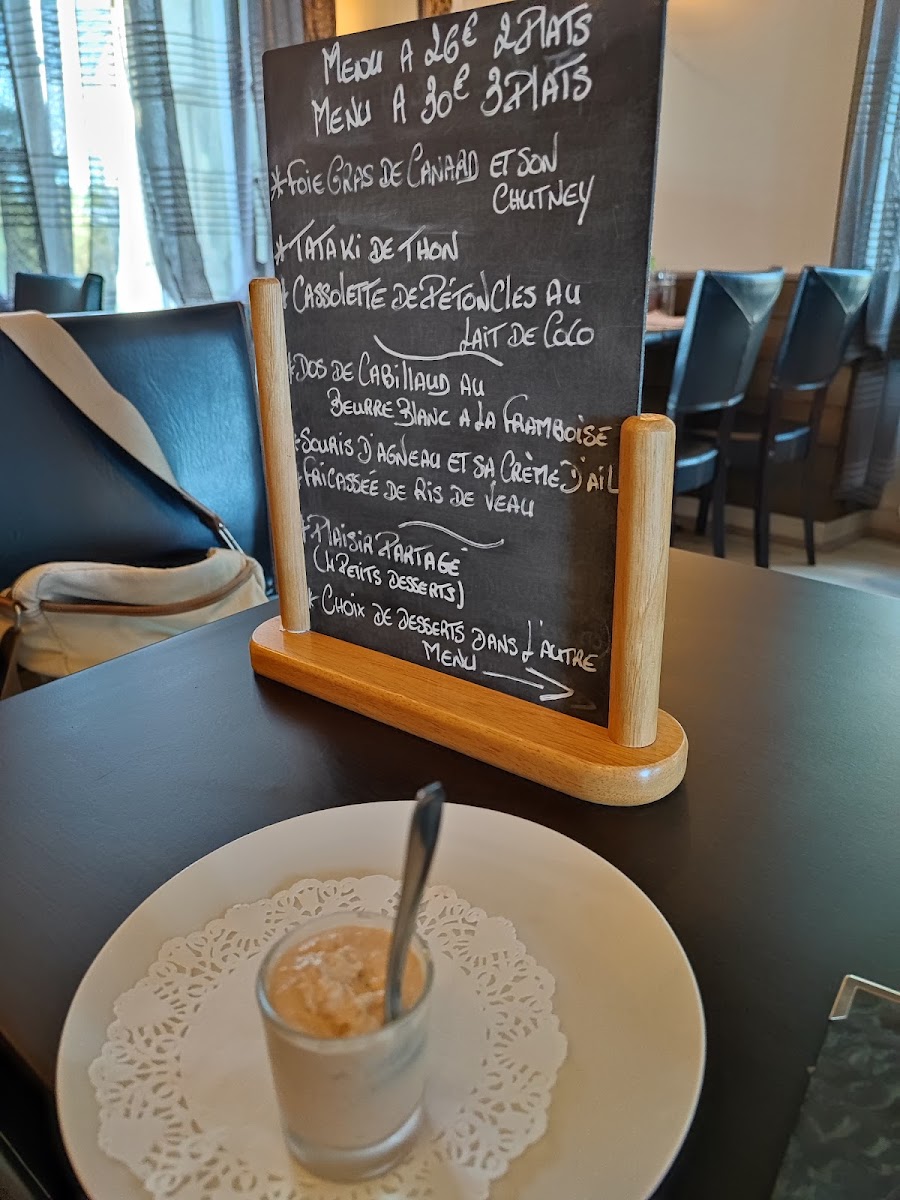 MENU A 26€ 2 PLATS
MENU A 30€ 3 PLATS
*FOIE GRAS DE CANARD ET SON
CHUTNEY
*TATAKI DE THON
*CASSOLETTE DE PÉTONCLES AU
LAIT DE COCO
*DOS DE CABILLAUD AU
BEURRE BLANC A LA FRAMBOISE
*SOURIS D'AGNEAU ET SA CRÈME D'AIL
*FRICASSÉE DE RIS DE VEAU
*PLAISIR PARTAGÉ
(4 PETITS DESSERTS)
*CHOIX DE DESSERTS DANS L'AUTRE
MENU →